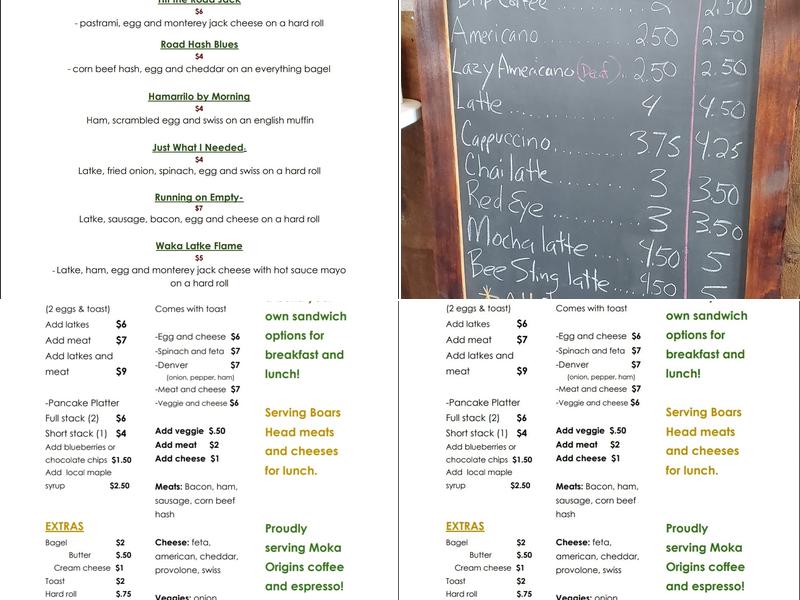 Till the Road Jack
$6
- pastrami, egg and monterey jack cheese on a hard roll
Road Hash Blues
$4
- corn beef hash, egg and cheddar on an everything bagel
Hamarrilo by Morning
$4
Ham, scrambled egg and swiss on an english muffin
Just What I Needed.
$4
Latke, fried onion, spinach, egg and swiss on a hard roll
Running on Empty-
$7
Latke, sausage, bacon, egg and cheese on a hard roll
Waka Latke Flame
$5
- Latke, ham, egg and monterey jack cheese with hot sauce mayo
on a hard roll
Drip Coffee 2 2.50
Americano ........ 250 2.50
Lazy Americano (Decaf) .. 2.50 2.50
Latte ............ 4 4.50
Cappuccino ........ 3.75 4.25
Chai latte ........ 3 3.50
Red Eye ........ 3 3.50
Mocha latte ........ 4.50 5
Bee Sting latte ..... 4.50 5
(2 eggs & toast)
Add latkes $6
Add meat $7
Add latkes and
meat $9
-Pancake Platter
Full stack (2) $6
Short stack (1) $4
Add blueberries or
chocolate chips $1.50
Add local maple
syrup $2.50
EXTRAS
Bagel $2
Butter $.50
Cream cheese $1
Toast $2
Hard roll $.75
Comes with toast
-Egg and cheese $6
-Spinach and feta $7
-Denver $7
(onion, pepper, ham)
-Meat and cheese $7
-Veggie and cheese $6
Add veggie $.50
Add meat $2
Add cheese $1
Meats: Bacon, ham,
sausage, corn beef
hash
Cheese: feta,
american, cheddar,
provolone, swiss
Veggies: onion,
own sandwich
options for
breakfast and
lunch!
Serving Boars
Head meats
and cheeses
for lunch.
Proudly
serving Moka
Origins coffee
and espresso!
(2 eggs & toast)
Add latkes $6
Add meat $7
Add latkes and
meat $9
-Pancake Platter
Full stack (2) $6
Short stack (1) $4
Add blueberries or
chocolate chips $1.50
Add local maple
syrup $2.50
EXTRAS
Bagel $2
Butter $.50
Cream cheese $1
Toast $2
Hard roll $.75
Comes with toast
-Egg and cheese $6
-Spinach and feta $7
-Denver $7
(onion, pepper, ham)
-Meat and cheese $7
-Veggie and cheese $6
Add veggie $.50
Add meat $2
Add cheese $1
Meats: Bacon, ham,
sausage, corn beef
hash
Cheese: feta,
american, cheddar,
provolone, swiss
Veggies: onion,
own sandwich
options for
breakfast and
lunch!
Serving Boars
Head meats
and cheeses
for lunch.
Proudly
serving Moka
Origins coffee
and espresso!